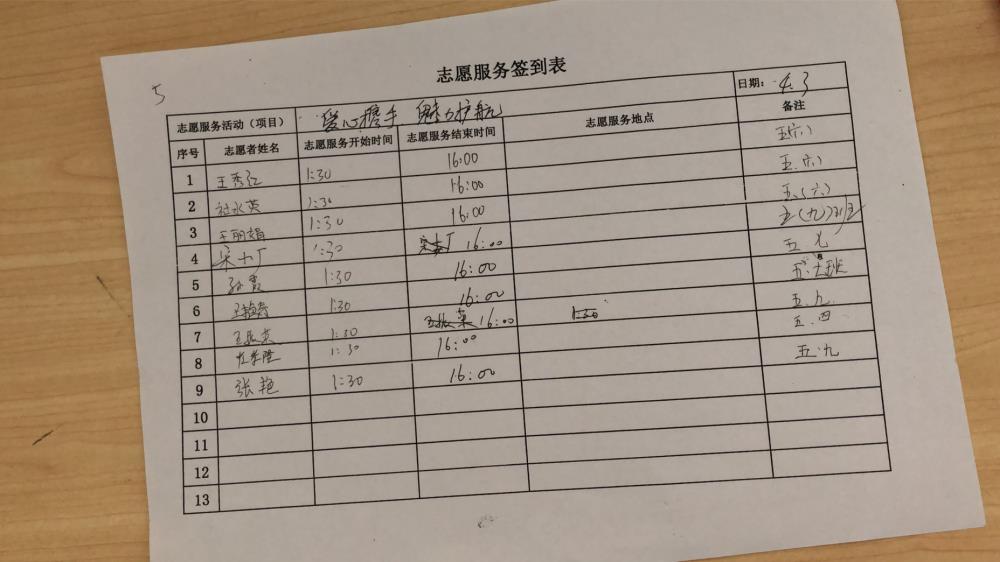 5
志愿服务签到表
日期： 4.3
志愿服务活动（项目） 爱心携手 魅力护航
序号 志愿者姓名 志愿服务开始时间 志愿服务结束时间 志愿服务地点 备注
1 王秀红 1:30 16:00 五六)
2 永英 1:30 16:00 五.六)
3 王丽娟 1:30 16:00 五.(六)
4 宋 厂 1:30 16:00 五(九)班
5 孙霞 1:30 16:00 五.九
6 王 1:30 16:00 五.六班
7 王振英 1:30 16:00 1:30 五.九
8 1:30 16:00 五.四
9 张艳 1:30 16:00 五.九
10
11
12
13